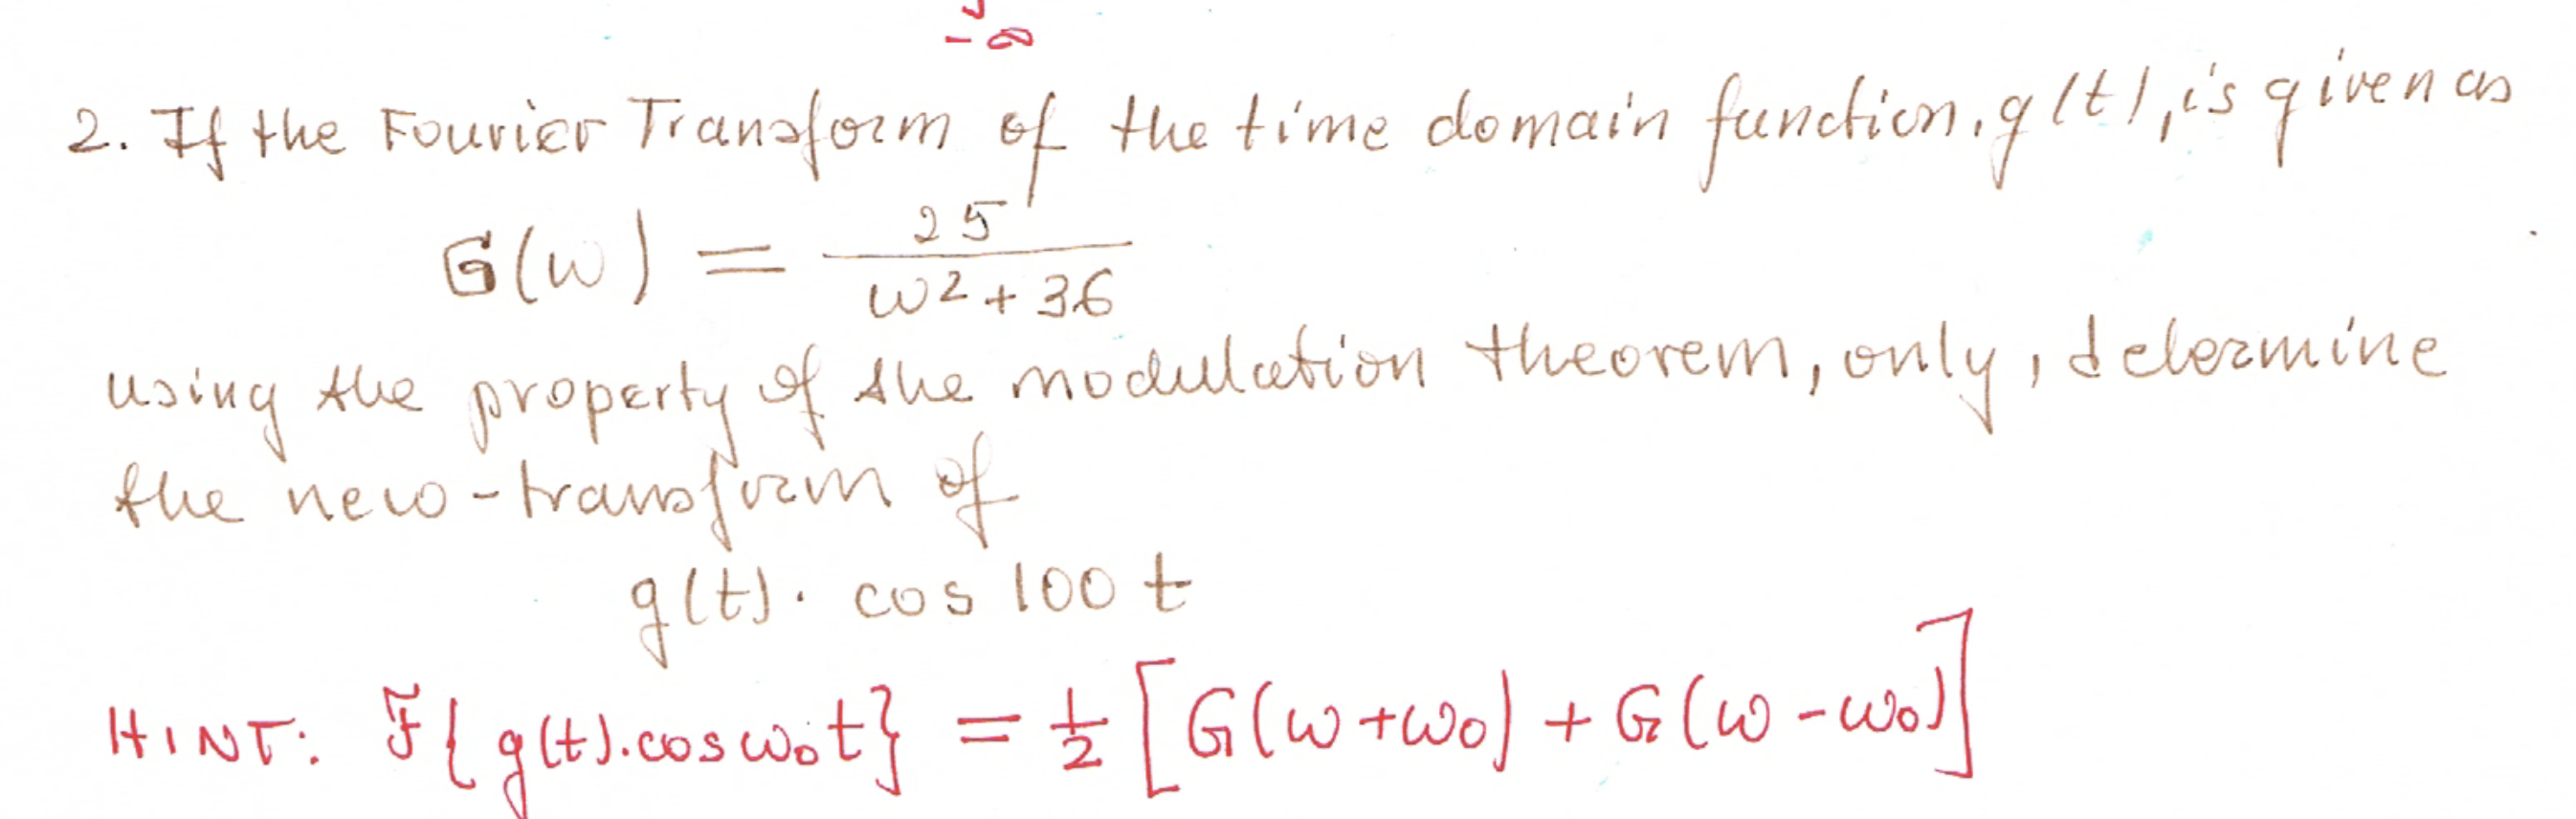 -∞
2. If the Fourier Transform of the time domain function, g(t), is given as
G(ω) = 25 / (ω² + 36)
using the property of the modulation theorem, only, determine
the new-transform of
g(t). cos 100 t
HINT: F{g(t).cos ω₀t} = 1/2 [G(ω+ω₀) + G(ω-ω₀)]